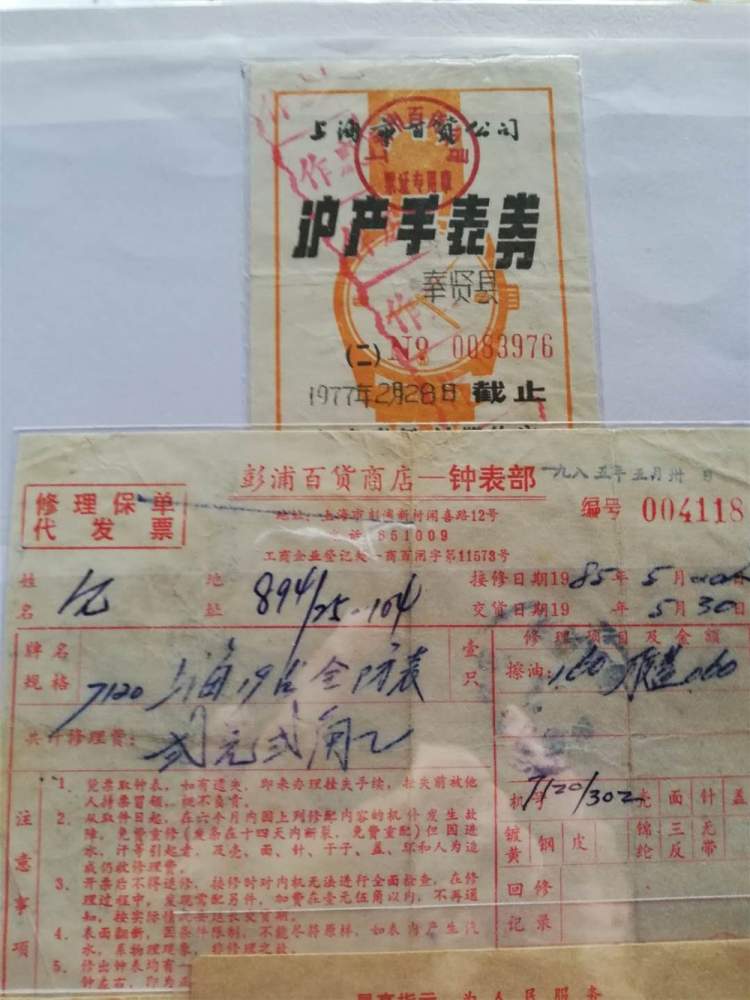 上海市百货公司
票证专用章
作
沪产手表券
奉贤县
(二) № 0083976
1977年2月28日 截止
彭浦百货商店—钟表部
一九八五年五月卅日
修理保单
代发票
地址:上海市彭浦新村闻喜路12号
电话 651009
编号 004118
工商企业登记处一商百闸字第11573号
姓名
地址 894/25-104
接修日期1985年5月
交货日期19 年5月30日
牌名
规格
7120 上海19钻全防表
壹只
修理项目及金额
擦油:1.60 .60
共计修理费:
贰元贰角
机号 7120/302
壳 面 针 盖
镀黄 钢 皮 锦纶 三反 无带
回修
记录
注意事项
1. 凭票取钟表,如有遗失,即来办理挂失手续,挂失前被他
人持票冒领,概不负责。
2. 从取件日起,在六个月内因上列修配内容的机件发生故
障,免费重修(发条在十四天内断裂,免费重配)但因进
水、汗等引起者,及壳、面、针、于子、盖、坏和人为造
成仍收修理费。
3. 开票后不得退修,接修时对内机无法进行全面检查,在修
理过程中,发现需配另件,加费在壹元伍角以内,不再通
知,按实际情况要延长交货期。
4. 表面翻新,因条件限制,不能尽得原样,如表内产生汽
水,系物理现象,非修理之故。
5. 修出钟表均有一
钟左右,即为正
最高指示 为人民服务